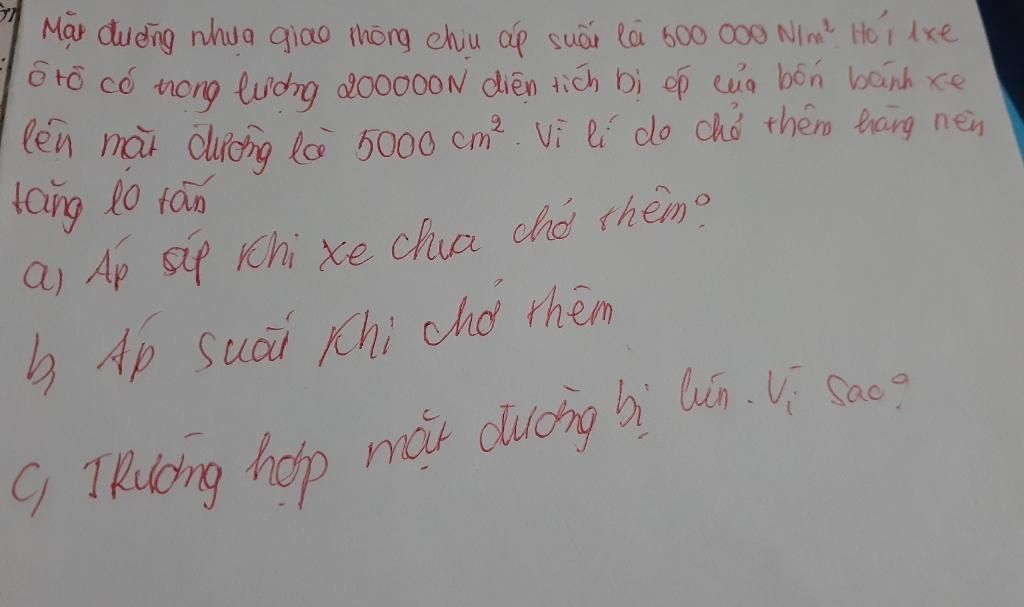 Mặt đường nhựa giao thông chịu áp suất là 600 000 N/m². Hỏi 1xe
ôtô có trọng lượng 200000N diện tích bị ép của bốn bánh xe
lên mặt đường là 5000 cm². Vì lí do chở thêm hàng nên
tăng 10 tấn
a) Áp sấp khi xe chưa chở thêm?
b, Áp suất khi chở thêm
c, Trường hợp mặt đường bị lún. Vì sao?